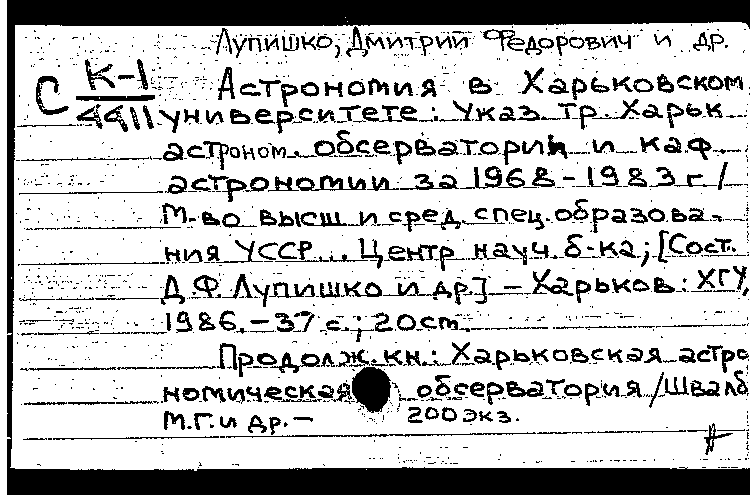 Лупишко, Дмитрий Федорович и др.
С К-1 Астрономия в Харьковском
4411 университете: Указ. тр. Харьк.
астроном. обсерватории и каф.
астрономии за 1968-1983 г. /
М-во высш. и сред. спец. образова-
ния УССР... Центр. науч. б-ка; [Сост.
Д.Ф. Лупишко и др.] – Харьков: ХГУ,
1986. – 37 с.; 20 см.
Продолж. кн.: Харьковская астро
номическая обсерватория / Швалб
М.Г. и др. – 200 экз.